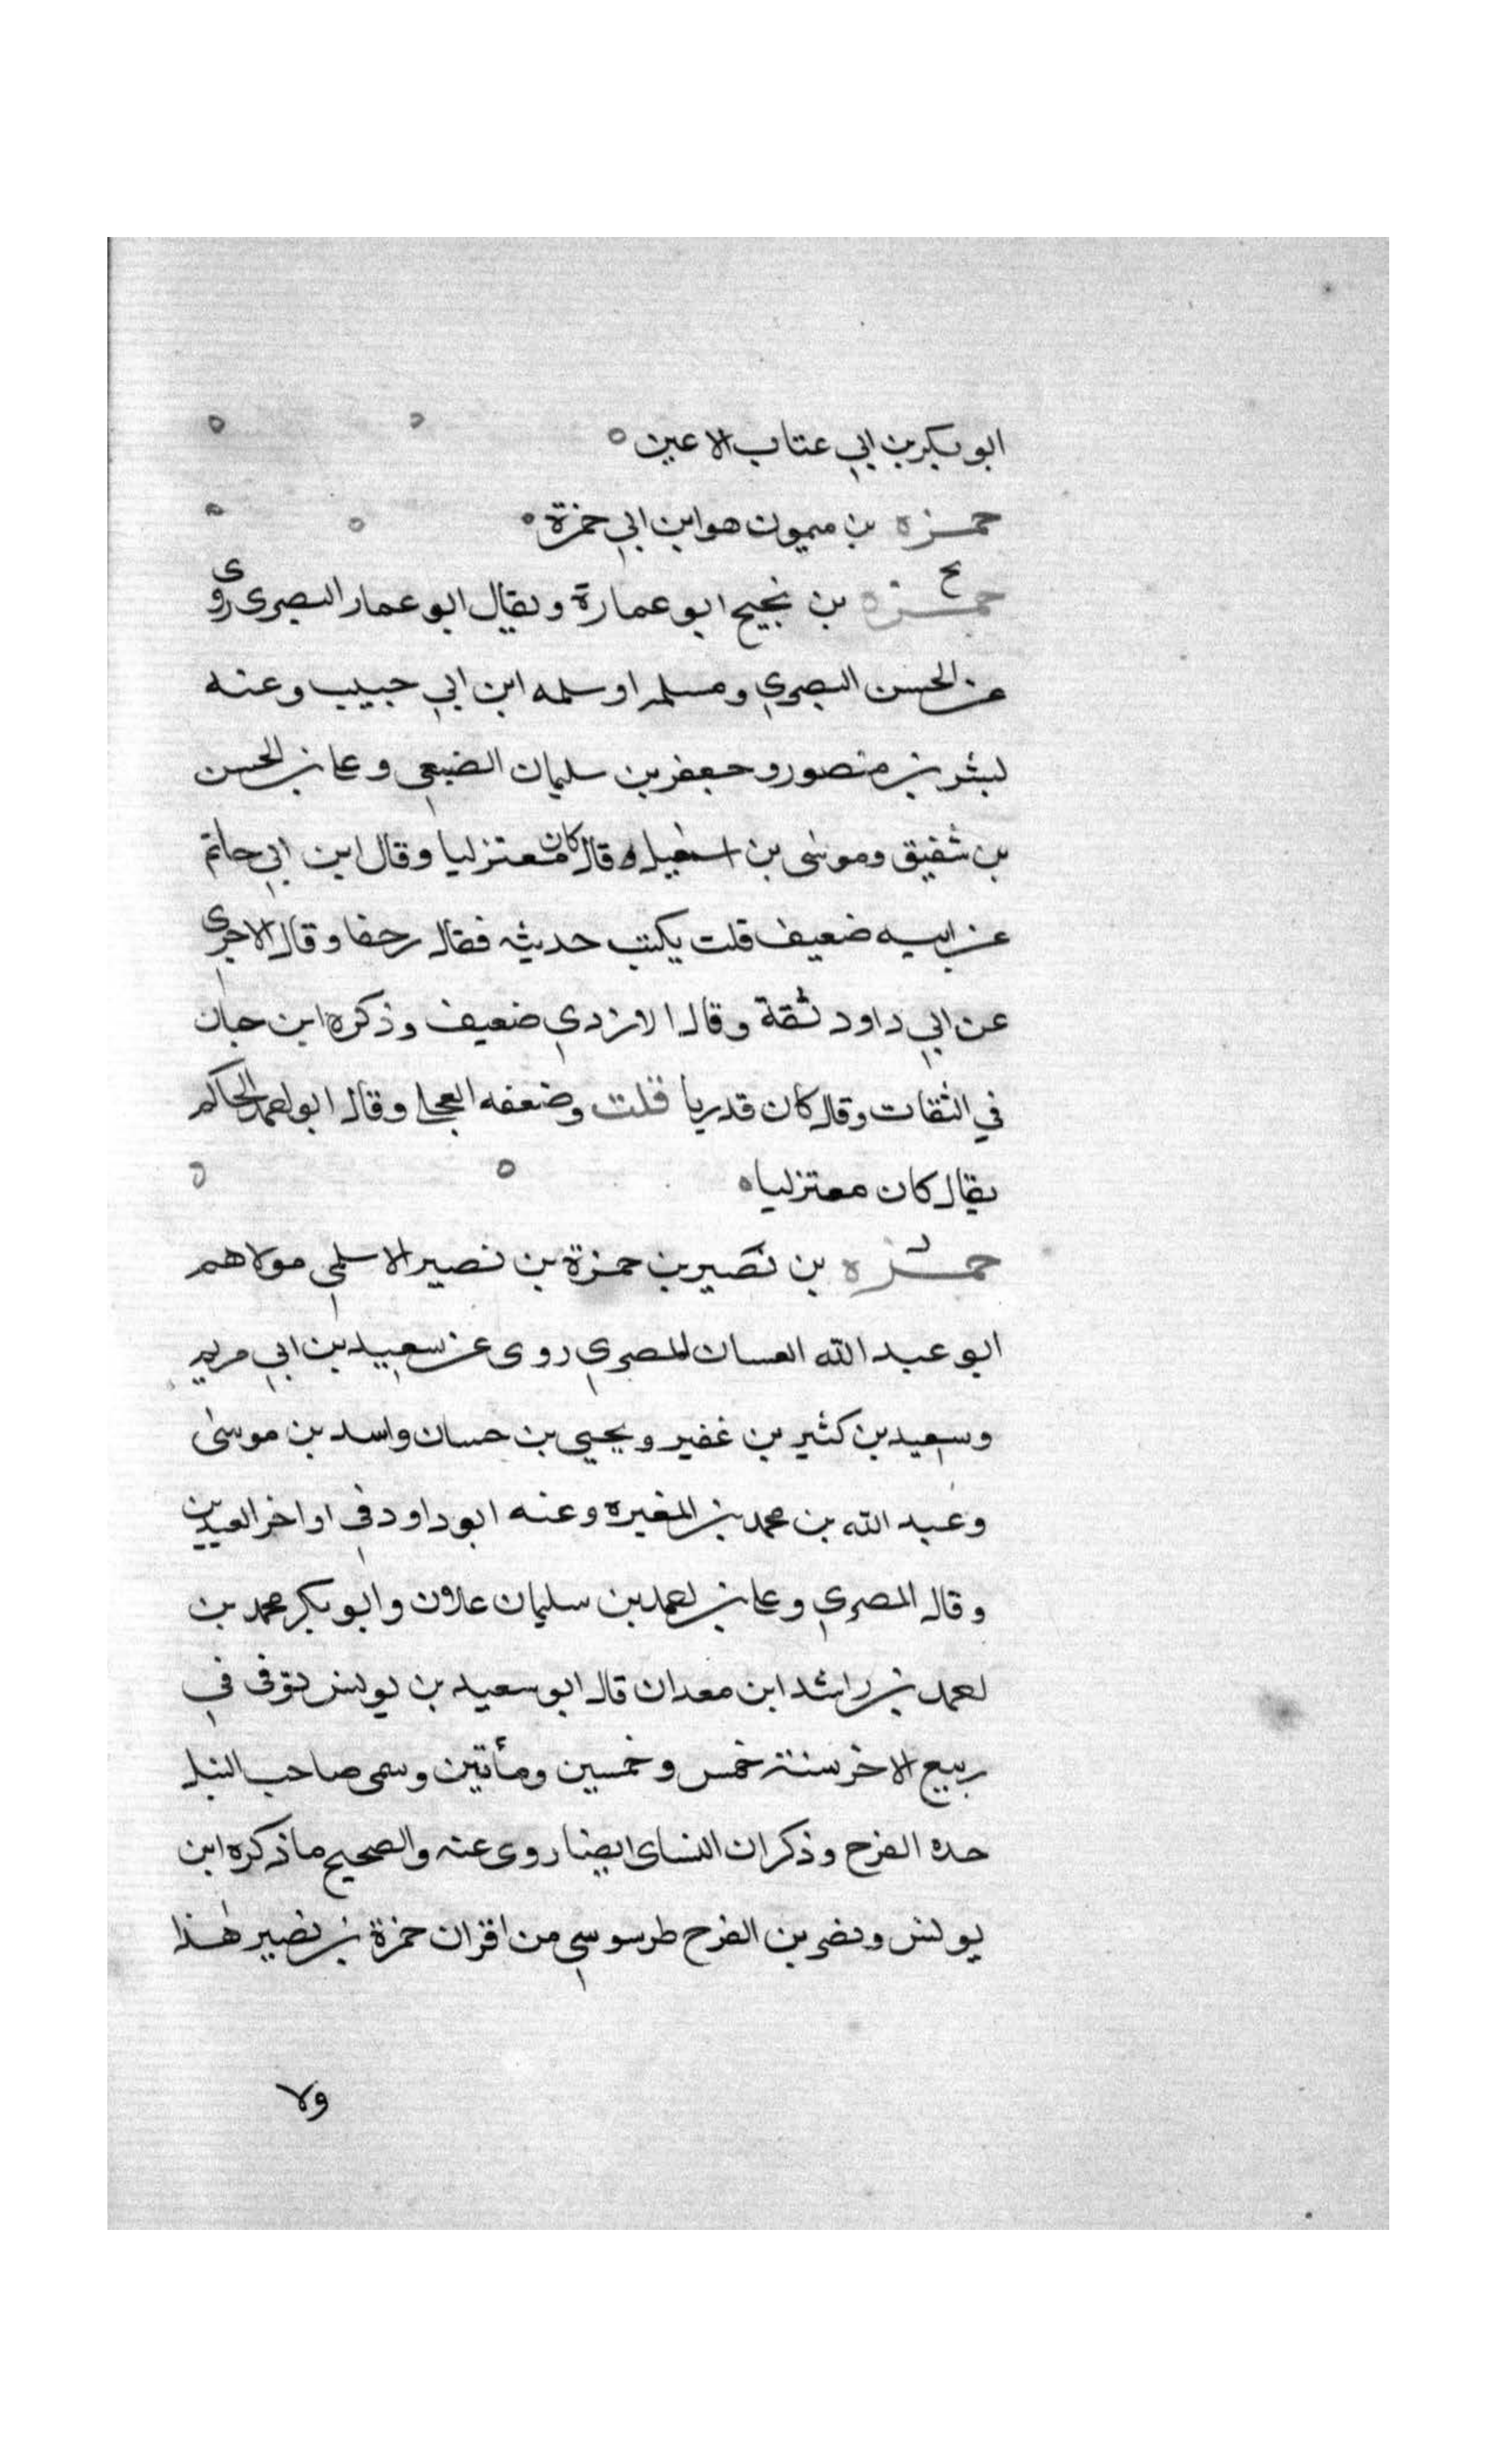 ابو بكر بن ابي عتاب الاعين ه
حمزه بن ميمون هو ابن ابي حمزة ه
حمزه بن نجيح ابو عمارة ويقال ابو عمار البصرى روى
عن الحسن البصري ومسلمة او سلمه ابن ابي حبيب وعنه
بشر بن منصور وجعفر بن سليمان الضبعي وعلى بن الحسن
بن شقيق وموسى بن اسمعيل وقال كان معتزليا وقال ابن ابي حاتم
عن ابيه ضعيف قلت يكتب حديثه فقال زحفا وقال الاجرى
عن ابي داود ثقة وقال الازدي ضعيف وذكره ابن حبان
في الثقات وقال كان قدريا قلت وضعفه العجلى وقال ابو احمد الحاكم
يقال كان معتزليا ه
حمزه بن نصير بن حمزة بن نصير الاسلمي مولاهم
ابو عبد الله العسال المصري روى عن سعيد بن ابي مريم
وسعيد بن كثير بن غفير ويحيي بن حسان واسد بن موسى
وعبد الله بن محمد بن المغيره وعنه ابو داود في اواخر العيدين
وقال المصري وعلى بن احمد بن سليمان علان وابو بكر محمد بن
احمد بن راشد ابن معدان قال ابو سعيد بن يونس توفى في
ربيع الاخر سنة خمس وخمسين ومأتين وسمى صاحب النبل
جده الفرج وذكر ان النساى ايضا روى عنه والصحيح ما ذكره ابن
يونس ونصر بن الفرج طرسوسي من اقران حمزة بن نصير هذا
ولا